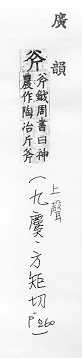 廣韻
斧
斧鉞周書曰神
農作陶冶斤斧
(上聲
九麌·方矩切
P260)